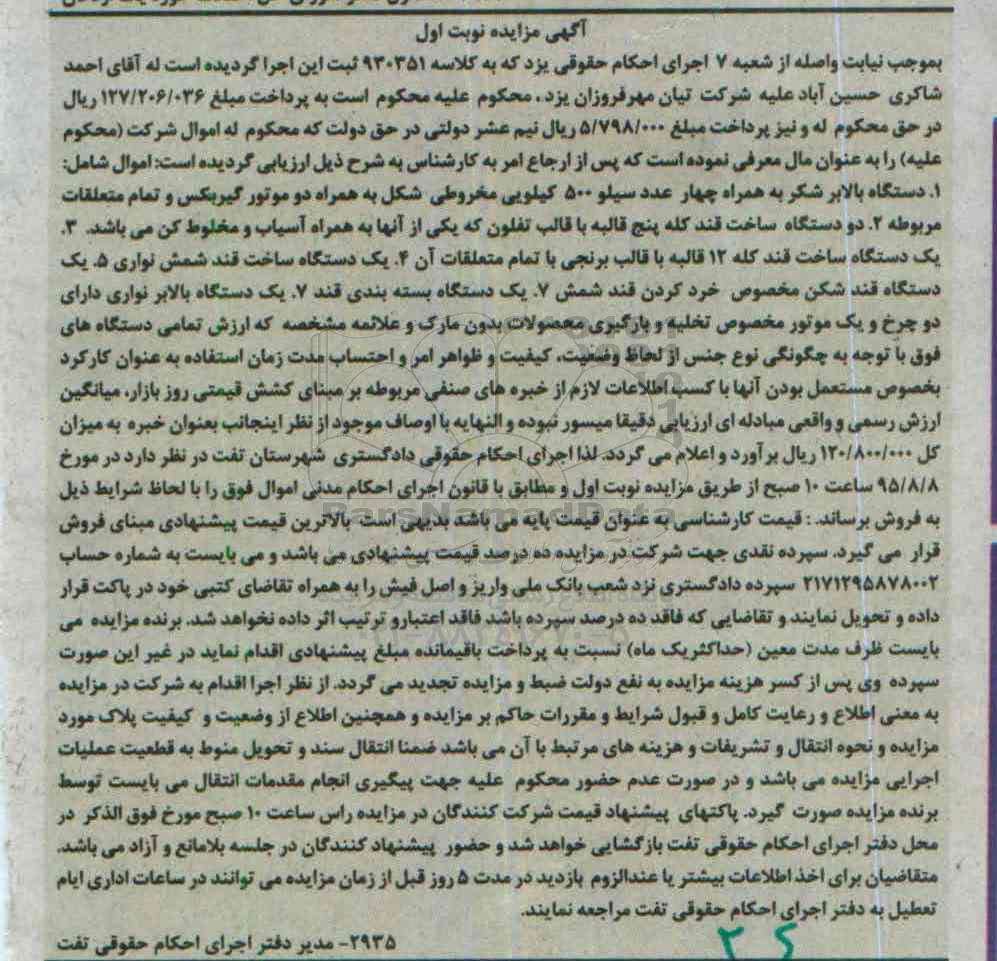 آگهی مزایده نوبت اول
بموجب نیابت واصله از شعبه ۷ اجرای احکام حقوقی یزد که به کلاسه ۹۳۰۳۵۱ ثبت این اجرا گردیده است له آقای احمد
شاکری حسین آباد علیه شرکت تیان مهرفروزان یزد ، محکوم علیه محکوم است به پرداخت مبلغ ۱۲۷/۲۰۶/۰۳۶ ریال
در حق محکوم له و نیز پرداخت مبلغ ۵/۷۹۸/۰۰۰ ریال نیم عشر دولتی در حق دولت که محکوم له اموال شرکت (محکوم
علیه) را به عنوان مال معرفی نموده است که پس از ارجاع امر به کارشناس به شرح ذیل ارزیابی گردیده است: اموال شامل:
۱. دستگاه بالابر شکر به همراه چهار عدد سیلو ۵۰۰ کیلویی مخروطی شکل به همراه دو موتور گیربکس و تمام متعلقات
مربوطه ۲. دو دستگاه ساخت قند کله پنج قالبه با قالب تفلون که یکی از آنها به همراه آسیاب و مخلوط کن می باشد. ۳.
یک دستگاه ساخت قند کله ۱۲ قالبه با قالب برنجی با تمام متعلقات آن ۴. یک دستگاه ساخت قند شمش نواری ۵. یک
دستگاه قند شکن مخصوص خرد کردن قند شمش ۷. یک دستگاه بسته بندی قند ۷. یک دستگاه بالابر نواری دارای
دو چرخ و یک موتور مخصوص تخلیه و بارگیری محصولات بدون مارک و علائمه مشخصه که ارزش تمامی دستگاه های
فوق با توجه به چگونگی نوع جنس از لحاظ وضعیت، کیفیت و ظواهر امر و احتساب مدت زمان استفاده به عنوان کارکرد
بخصوص مستعمل بودن آنها با کسب اطلاعات لازم از خبره های صنفی مربوطه بر مبنای کشش قیمتی روز بازار، میانگین
ارزش رسمی و واقعی مبادله ای ارزیابی دقیقا میسور نبوده و النهایه با اوصاف موجود از نظر اینجانب بعنوان خبره به میزان
کل ۱۲۰/۸۰۰/۰۰۰ ریال برآورد و اعلام می گردد. لذا اجرای احکام حقوقی دادگستری شهرستان تفت در نظر دارد در مورخ
۹۵/۸/۸ ساعت ۱۰ صبح از طریق مزایده نوبت اول و مطابق با قانون اجرای احکام مدنی اموال فوق را با لحاظ شرایط ذیل
به فروش برساند. : قیمت کارشناسی به عنوان قیمت پایه می باشد بدیهی است بالاترین قیمت پیشنهادی مبنای فروش
قرار می گیرد. سپرده نقدی جهت شرکت در مزایده ده درصد قیمت پیشنهادی می باشد و می بایست به شماره حساب
۲۱۷۱۲۹۵۸۷۸۰۰۲ سپرده دادگستری نزد شعب بانک ملی واریز و اصل فیش را به همراه تقاضای کتبی خود در پاکت قرار
داده و تحویل نمایند و تقاضایی که فاقد ده درصد سپرده باشد فاقد اعتبارو ترتیب اثر داده نخواهد شد. برنده مزایده می
بایست ظرف مدت معین (حداکثریک ماه) نسبت به پرداخت باقیمانده مبلغ پیشنهادی اقدام نماید در غیر این صورت
سپرده وی پس از کسر هزینه مزایده به نفع دولت ضبط و مزایده تجدید می گردد. از نظر اجرا اقدام به شرکت در مزایده
به معنی اطلاع و رعایت کامل و قبول شرایط و مقررات حاکم بر مزایده و همچنین اطلاع از وضعیت و کیفیت پلاک مورد
مزایده و نحوه انتقال و تشریفات و هزینه های مرتبط با آن می باشد ضمنا انتقال سند و تحویل منوط به قطعیت عملیات
اجرایی مزایده می باشد و در صورت عدم حضور محکوم علیه جهت پیگیری انجام مقدمات انتقال می بایست توسط
برنده مزایده صورت گیرد. پاکتهای پیشنهاد قیمت شرکت کنندگان در مزایده راس ساعت ۱۰ صبح مورخ فوق الذکر در
محل دفتر اجرای احکام حقوقی تفت بازگشایی خواهد شد و حضور پیشنهاد کنندگان در جلسه بلامانع و آزاد می باشد.
متقاضیان برای اخذ اطلاعات بیشتر یا عندالزوم بازدید در مدت ۵ روز قبل از زمان مزایده می توانند در ساعات اداری ایام
تعطیل به دفتر اجرای احکام حقوقی تفت مراجعه نمایند.
۲۹۳۵- مدیر دفتر اجرای احکام حقوقی تفت
ParsNamadData